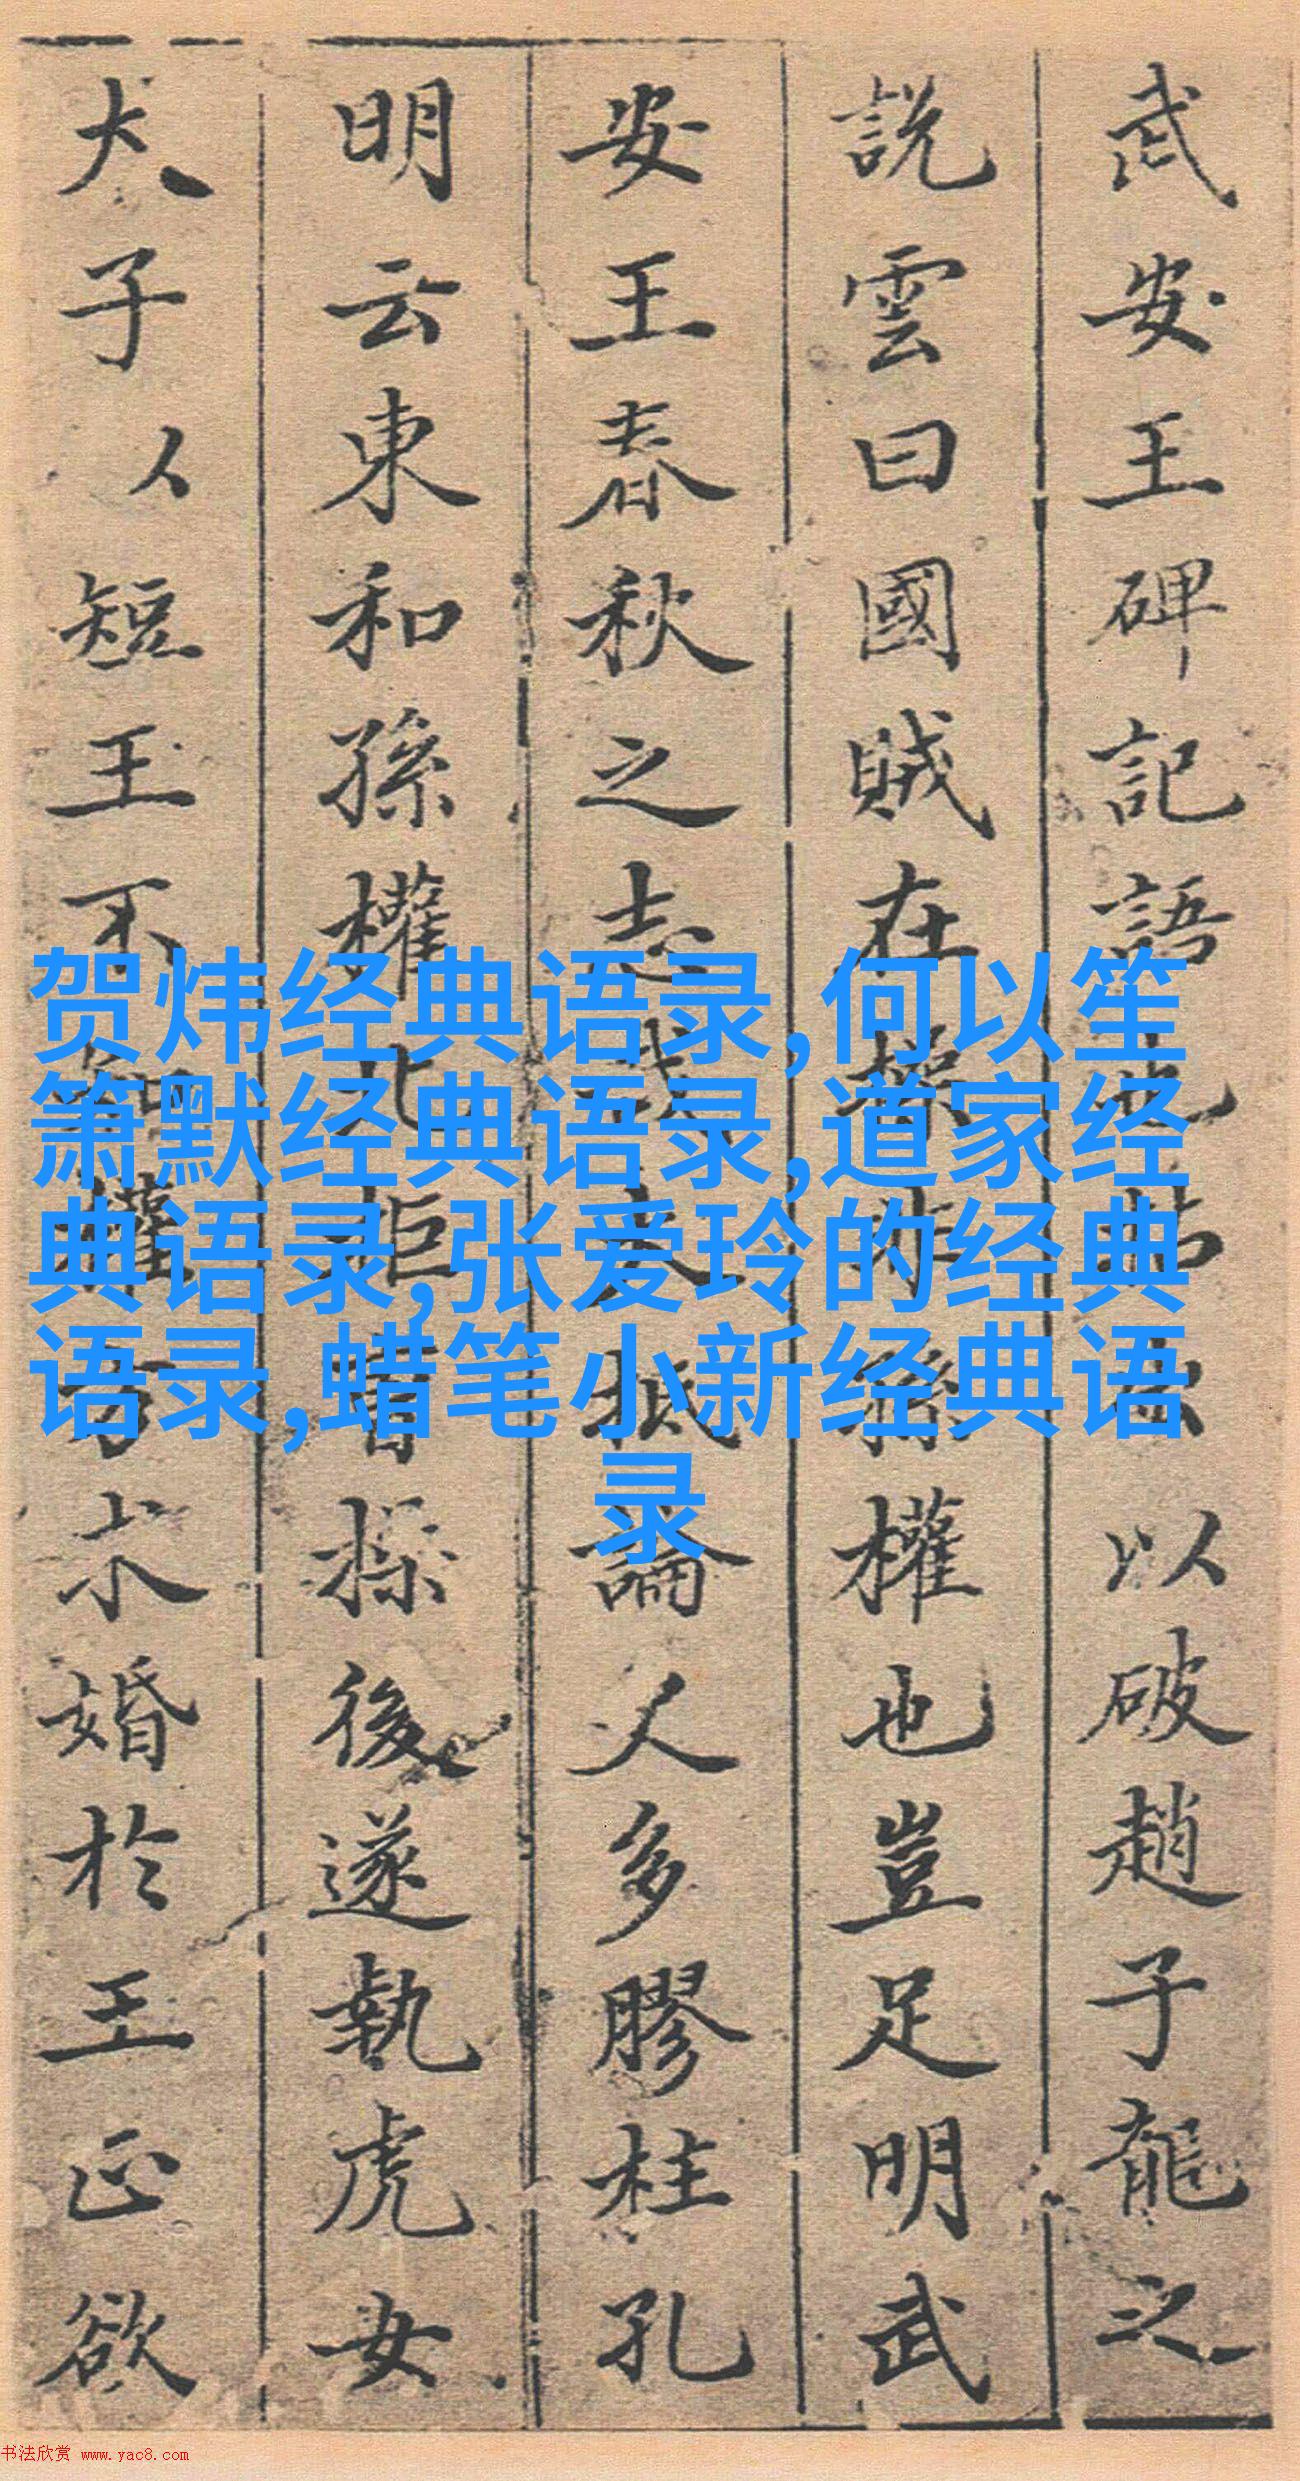 武安王碑記語也帖以以破趙子龍之
說雲曰國賊在操非孫權也豈足明武
安王春秋之志哉大抵論人多膠柱孔
明云東和孫權北拒曹操後遂執虎女
大子以短王不知權方求婚於王正欲
贺炜经典语录,何以笙
箫默经典语录,道家经
典语录,张爱玲的经典
语录,蜡笔小新经典语
录
书法欣赏 www.yac8.com